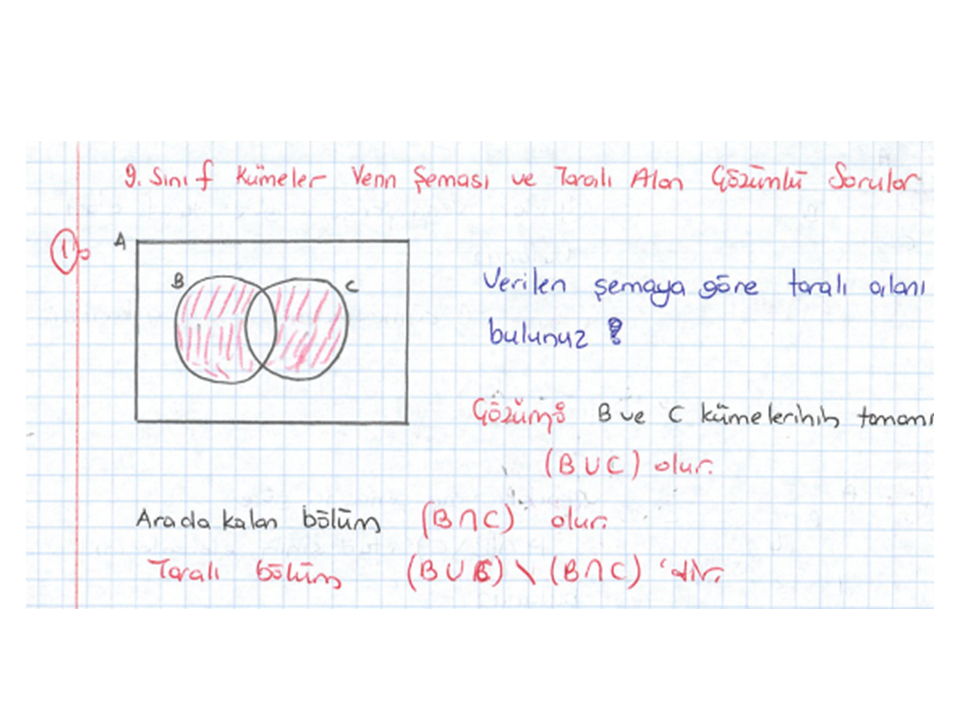 9. Sınıf Kümeler Venn Şeması ve Taralı Alan Çözümlü Sorular
1)
A
B
C
Verilen şemaya göre taralı alanı
bulunuz ?
Çözüm: B ve C kümelerinin tamamı
(B∪C) olur.
Arada kalan bölüm (B∩C) olur.
Taralı bölüm (B∪C) \ (B∩C) 'dir.